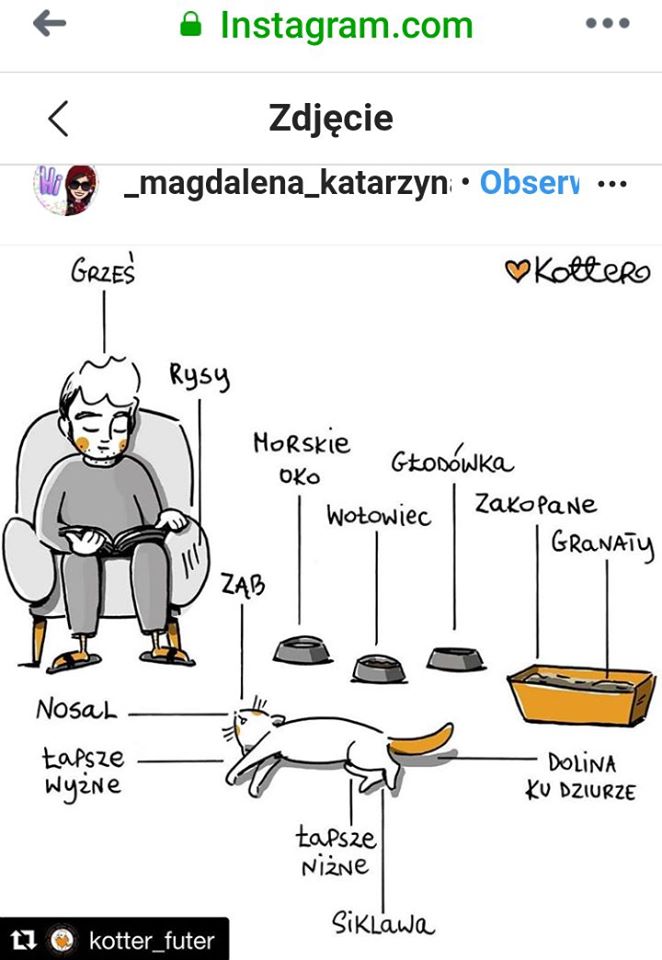 Instagram.com
Zdjęcie
Hi
_magdalena_katarzyna • Obserw
GRZEŚ
Kottero
RYSY
MORSKIE
OKO
GŁODÓWKA
WOŁOWIEC
ZAKOPANE
GRANATY
ZĄB
NOSAL
ŁAPSZE
WYŻNE
DOLINA
KU DZIURZE
ŁAPSZE
NIŻNE
SIKLAWA
kotter_futer